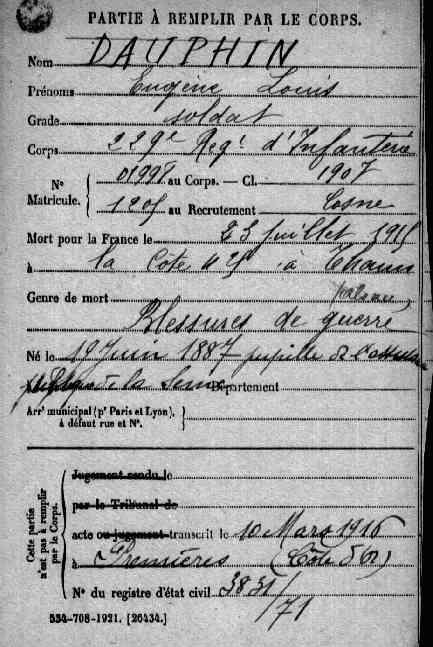 PARTIE À REMPLIR PAR LE CORPS.
Nom DAUPHIN
Prénoms Eugène Louis
Grade soldat
Corps 229e Regt d'Infanterie
N° Matricule. 01998 au Corps. — Cl. 1907
1205 au Recrutement Cosne
Mort pour la France le 23 Juillet 1915
à la Cote 425 à Thann
Genre de mort
Blessures de guerre
Né le 19 Juin 1887 pupille de l'assistance
publique de la Seine Département
Arrt municipal (pr Paris et Lyon),
à défaut rue et N°.
Cette partie
n'est pas à remplir
par le Corps.
Jugement rendu le
par le Tribunal de
acte ou jugement transcrit le 10 Mars 1916
à
N° du registre d'état civil 3831/71
534-708-1921. [26434.]